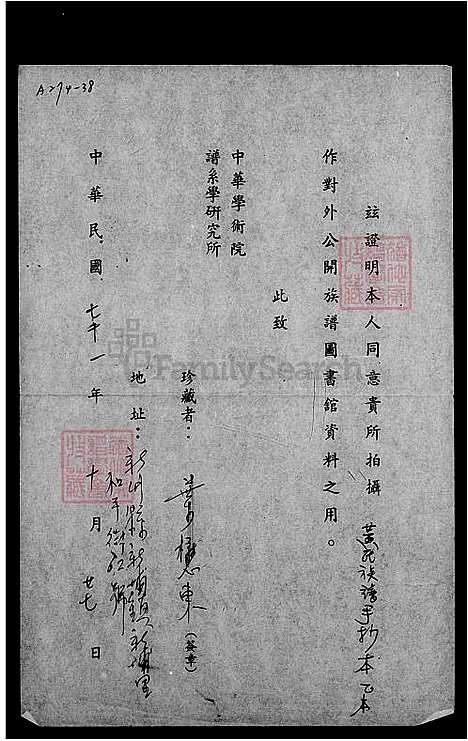 A274-38
茲證明本人同意貴所拍攝 黃氏族譜手抄本乙本
作對外公開族譜圖書館資料之用。
此致
中華學術院
譜系學研究所
珍藏者： 東 (簽章)
地址：新竹縣新埔鎮新埔里
和平街 號
中華民國 七十一 年 十 月 廿七 日
FamilySearch